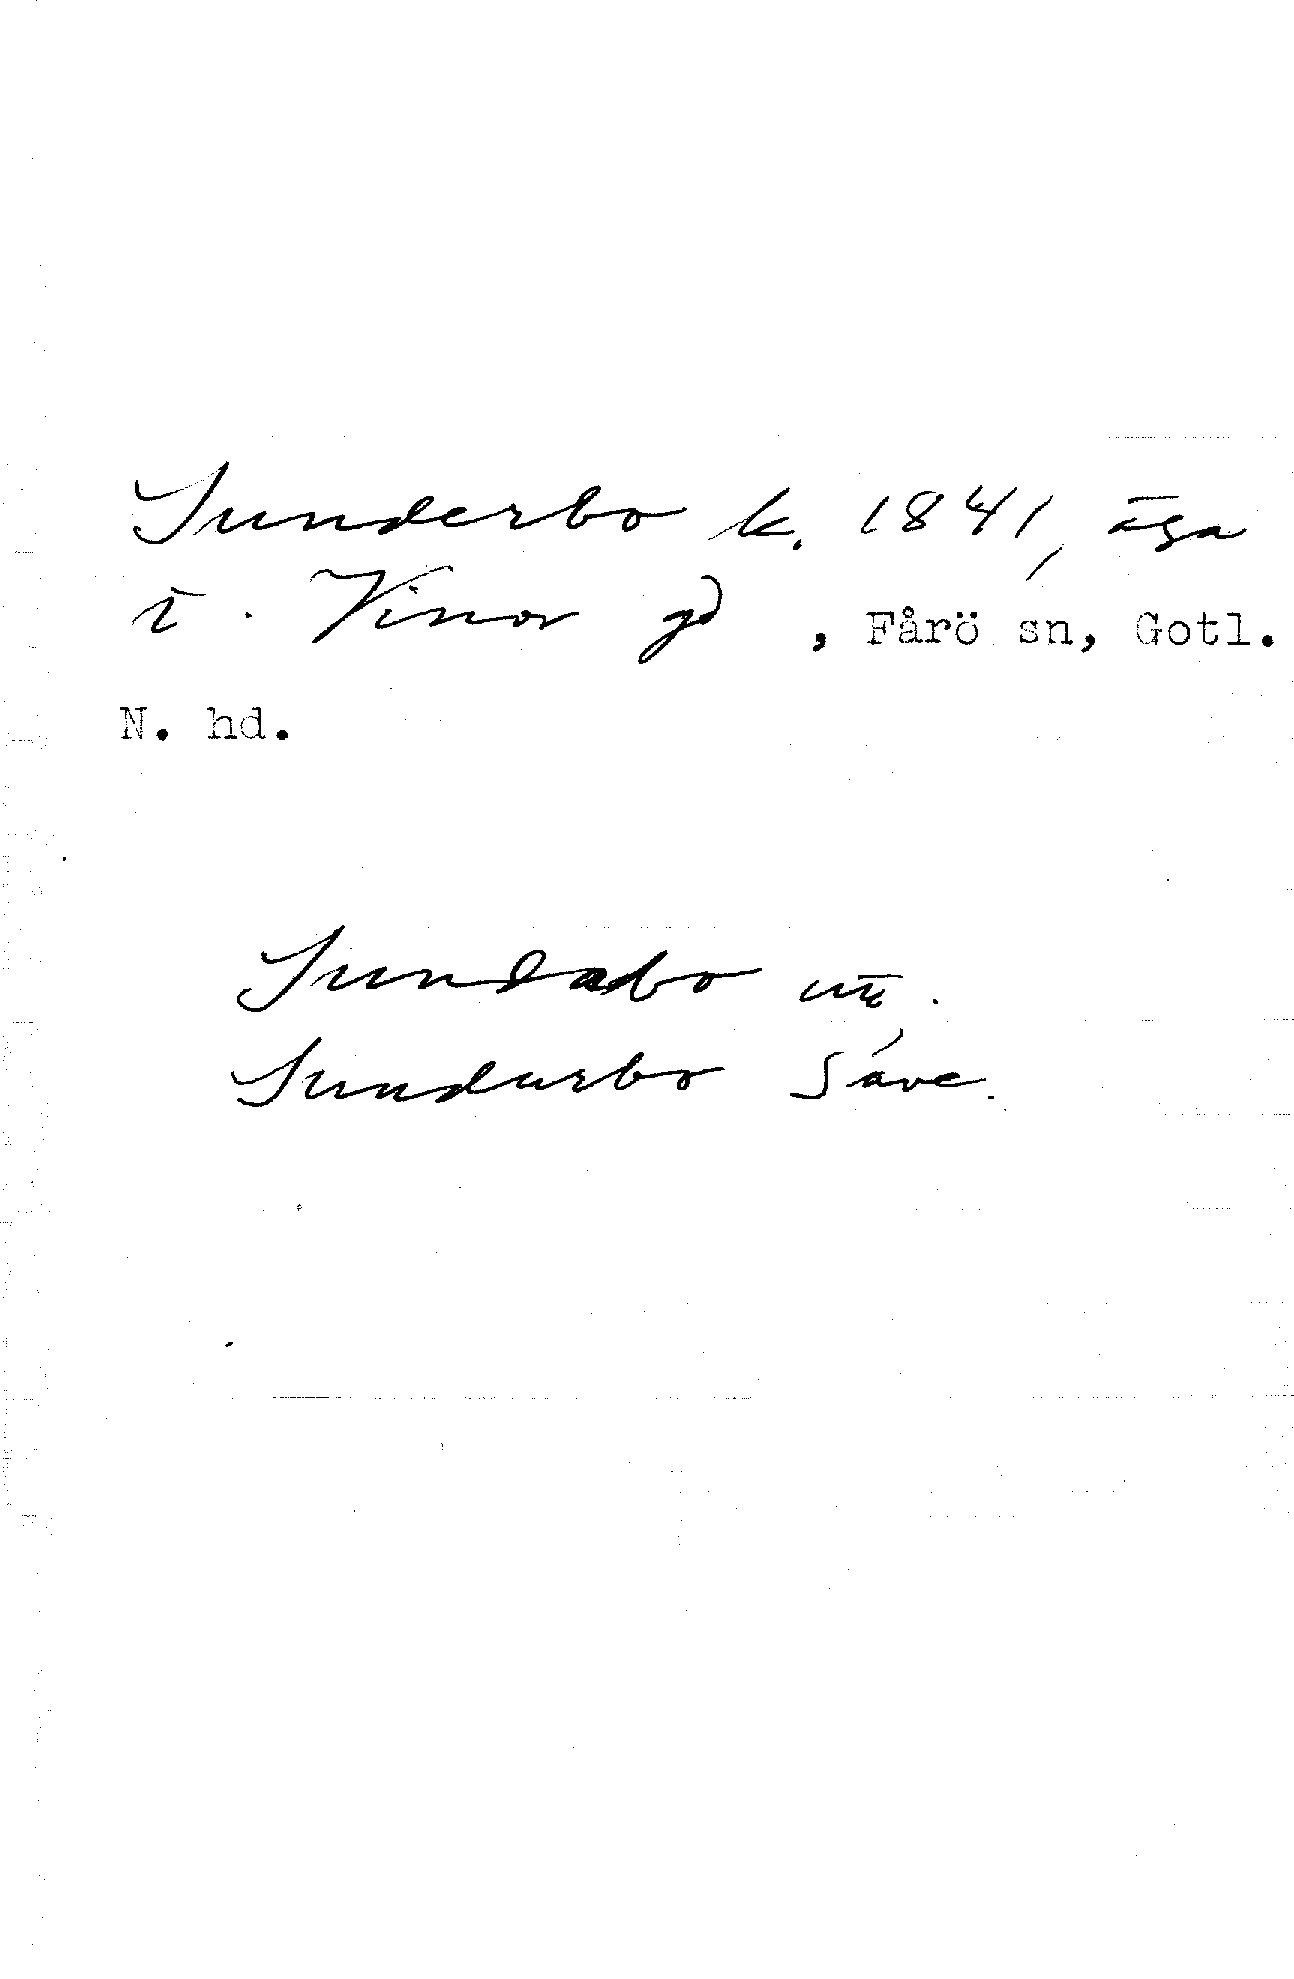 Sunderbo k. 1841, äga
t. Vinor gd, Fårö sn, Gotl.
N. hd.
Sundabo
Sundurbo Säve.